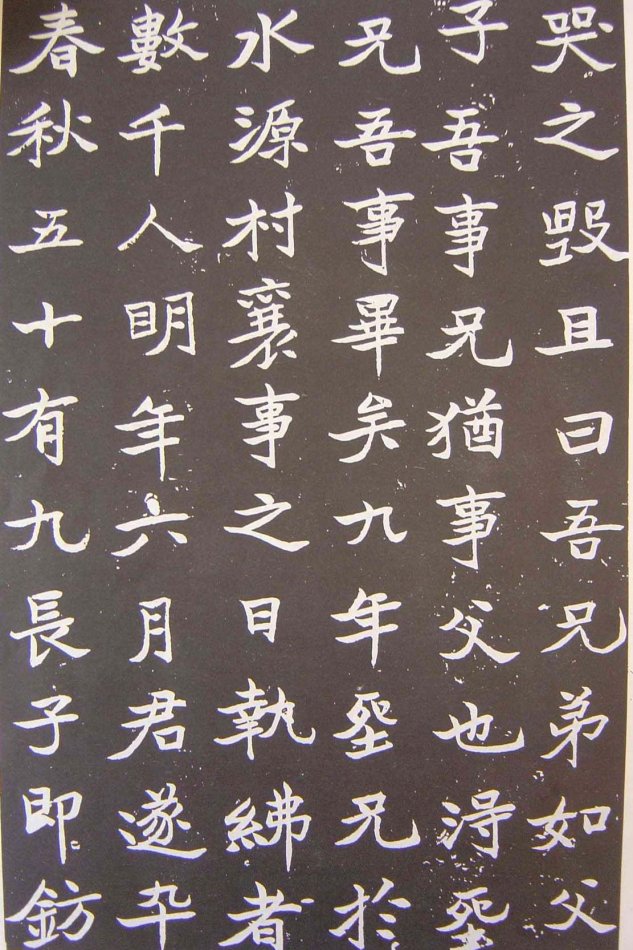 哭之毁且曰吾兄弟如父
子吾事兄猶事父也淂塟
兄吾事畢矣九年塟兄於
水源村襄事之日執紼者
數千人明年六月君遂卒
春秋五十有九長子即鈁